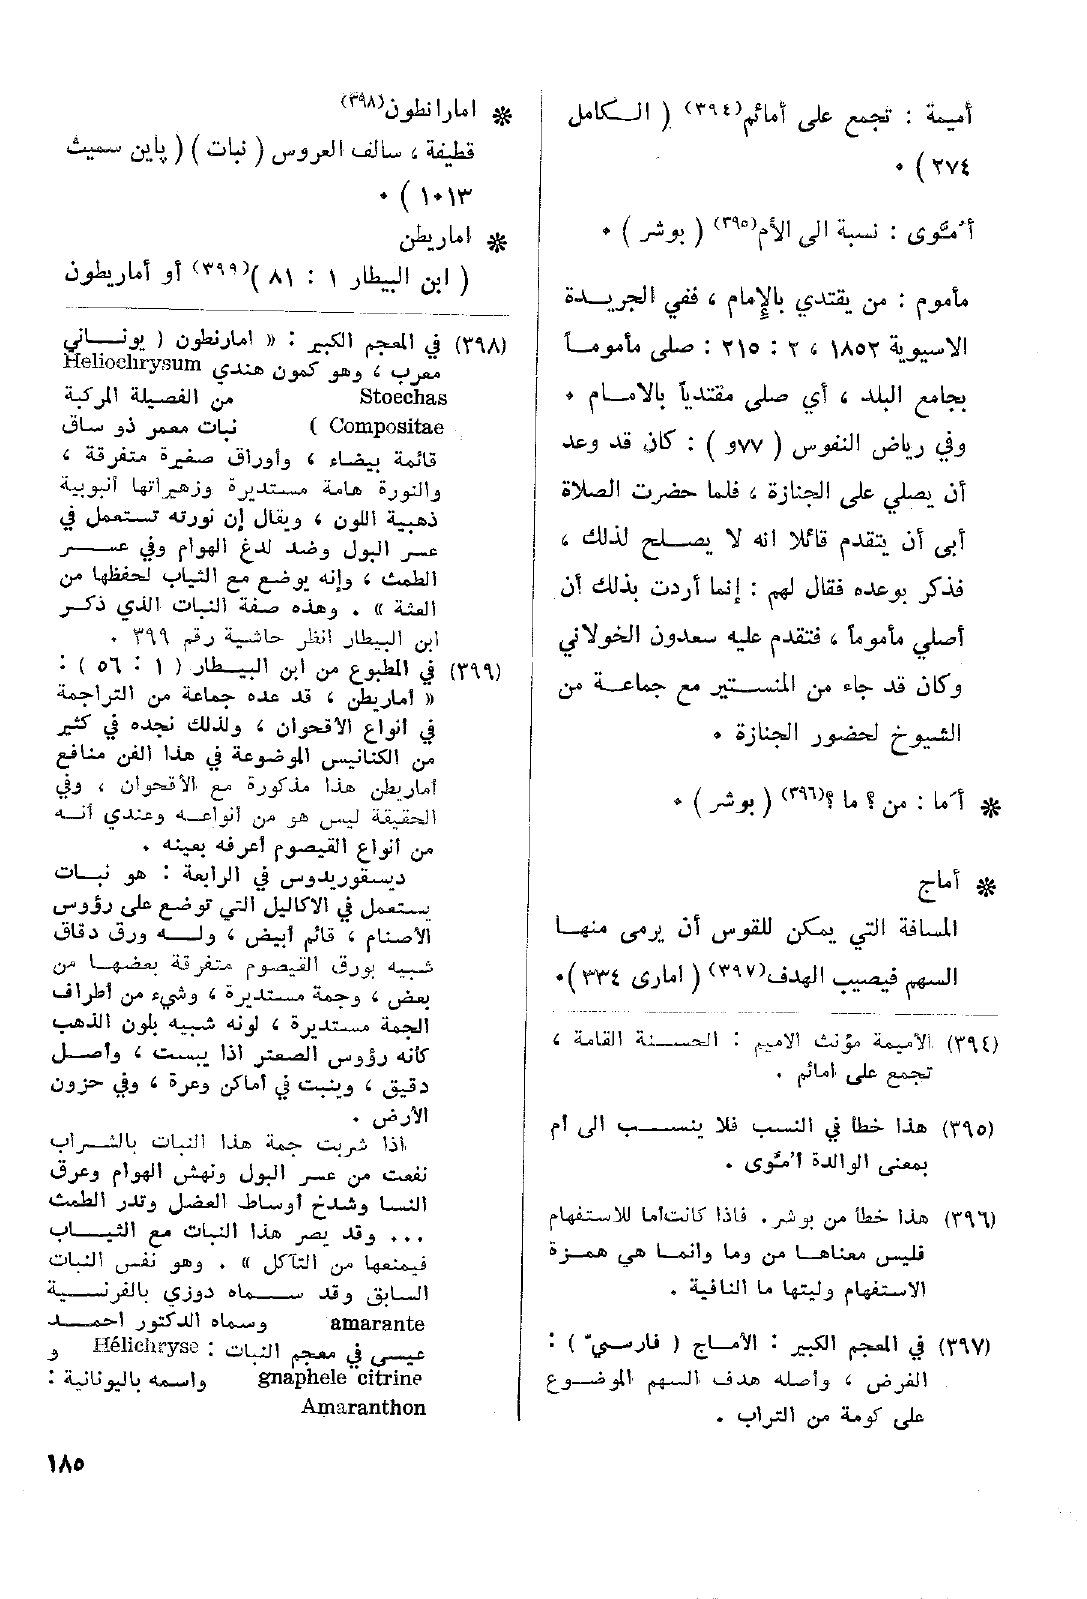 أميمة : تجمع على أمائم(٣٩٤) ( الـكامل
٢٧٤ ) ٠
أُمَّوى : نسبة الى الأم(٣٩٥) ( بوشر ) ٠
مأموم : من يقتدي بالإمام ، ففي الجريـدة
الاسيوية ١٨٥٢ ، ٢ : ٢١٥ : صلى مأمومـاً
بجامع البلد ، أي صلى مقتدياً بالامـام ٠
وفي رياض النفوس ( ٧٧و ) : كان قد وعد
أن يصلي على الجنازة ، فلما حضرت الصلاة
أبى أن يتقدم قائلا انه لا يصـلح لذلك ،
فذكر بوعده فقال لهم : إنما أردت بذلك أن
أصلي مأموماً ، فتقدم عليه سعدون الخولاني
وكان قد جاء من المنسـتير مع جماعـة من
الشيوخ لحضور الجنازة ٠
❋ أَما : من ؟ ما ؟(٣٩٦) ( بوشر ) ٠
❋ أماج
المسافة التي يمـكن للقوس أن يرمى منهـا
السهم فيصيب الهدف(٣٩٧) ( امارى ٣٣٤ )٠
(٣٩٤) الاميمة مؤنث الاميم : الحسـنة القامة ،
تجمع على امائم .
(٣٩٥) هذا خطأ في النسب فلا ينسـب الى أم
بمعنى الوالدة أُمَّوى .
(٣٩٦) هذا خطأ من بوشر. فاذا كانت أما للاستفهام
فليس معناهـا من وما وانمـا هي همـزة
الاستفهام وليتها ما النافية .
(٣٩٧) في المعجم الكبير : الأمـاج ( فارسيّ ) :
الغرض ، وأصله هدف السهم الموضـوع
على كومة من التراب .
❋ امارانطون(٣٩٨)
قطيفة ، سالف العروس ( نبات ) ( پاين سميث
١٠١٣ ) ٠
❋ اماريطن
( ابن البيطار ١ : ٨١ )(٣٩٩) أو أماريطون
(٣٩٨) في المعجم الكبير : « امارنطون ( يونـاني
معرب ، وهو كمون هندي Heliochrysum
Stoechas من الفصيلة المركبة
Compositae ) نبات معمر ذو ساق
قائمة بيضاء ، وأوراق صغيرة متفرقة ،
والنورة هامة مستديرة وزهيراتها أنبوبية
ذهبية اللون ، ويقال إن نورته تستعمل في
عسر البول وضد لدغ الهوام وفي عسـر
الطمث ، وإنه يوضع مع الثياب لحفظها من
العثة » . وهذه صفة النبات الذي ذكـر
ابن البيطار انظر حاشية رقم ٣٩٩ .
(٣٩٩) في المطبوع من ابن البيـطار ( ١ : ٥٦ ) :
« أماريطن ، قد عده جماعة من التراجمة
في انواع الاقحوان ، ولذلك نجده في كثير
من الكنانيس الموضوعة في هذا الفن منافع
أماريطن هذا مذكورة مع الأقحوان ، وفي
الحقيقة ليس هو من أنواعـه وعندي أنـه
من أنواع القيصوم أعرفه بعينه .
ديسقوريدوس في الرابعة : هو نبـات
يستعمل في الاكاليل التي توضع على رؤوس
الأصنام ، قائم أبيض ، ولـه ورق دقاق
شبيه بورق القيصوم متفرقة بعضهـا من
بعض ، وجمة مستديرة ، وشيء من أطراف
الجمة مستديرة ، لونه شبيه بلون الذهب
كأنه رؤوس الصعتر اذا يبست ، وأصـل
دقيق ، وينبت في أماكن وعرة ، وفي حزون
الأرض .
اذا شربت جمة هذا النبات بالشـراب
نفعت من عسر البول ونهش الهوام وعرق
النسا وشدخ أوساط العضل وتدر الطمث
... وقد يصر هذا النبات مع الثيـاب
فيمنعها من التآكل » . وهو نفس النبات
السابق وقد سـماه دوزي بالفرنسـية
amarante وسماه الدكتور احمـد
عيسى في معجم النبات : Hélichryse و
gnaphele citrine واسمه باليونانية :
Amaranthon
١٨٥